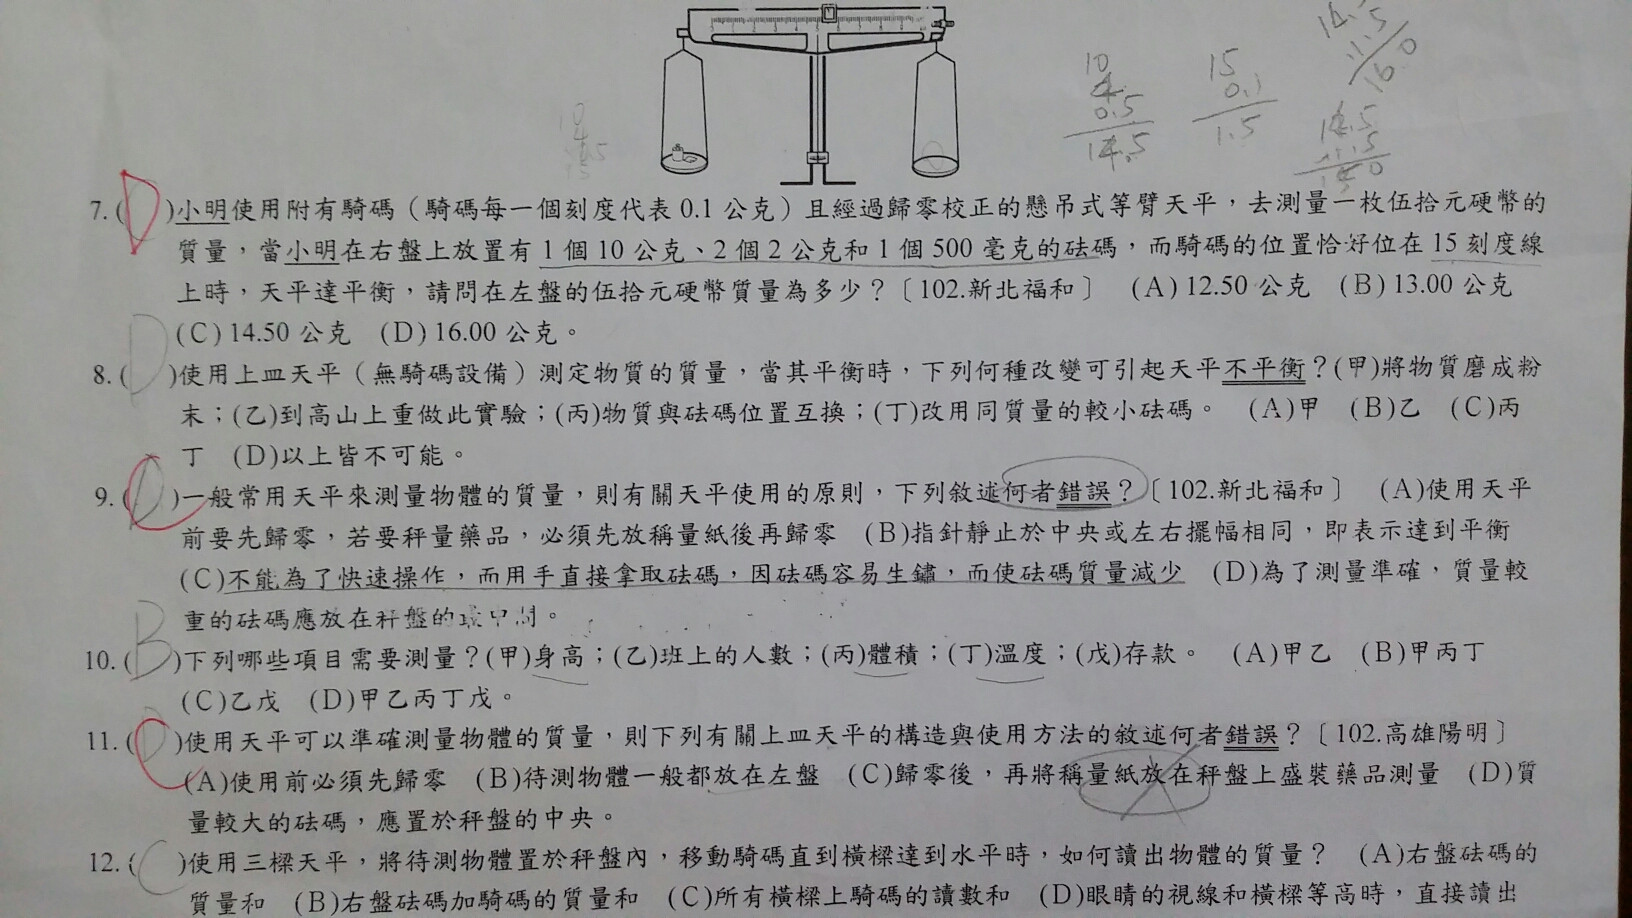 10
4.
0.5
14.5
15
0.1
1.5
14.5
1.5
16.0
14.5
7.(D)小明使用附有騎碼（騎碼每一個刻度代表 0.1 公克）且經過歸零校正的懸吊式等臂天平，去測量一枚伍拾元硬幣的
質量，當小明在右盤上放置有 1 個 10 公克、2 個 2 公克和 1 個 500 毫克的砝碼，而騎碼的位置恰好位在 15 刻度線
上時，天平達平衡，請問在左盤的伍拾元硬幣質量為多少？〔102.新北福和〕 (A) 12.50 公克 (B) 13.00 公克
(C) 14.50 公克 (D) 16.00 公克。
8.(D)使用上皿天平（無騎碼設備）測定物質的質量，當其平衡時，下列何種改變可引起天平不平衡？(甲)將物質磨成粉
末；(乙)到高山上重做此實驗；(丙)物質與砝碼位置互換；(丁)改用同質量的較小砝碼。 (A)甲 (B)乙 (C)丙
丁 (D)以上皆不可能。
9.(C)一般常用天平來測量物體的質量，則有關天平使用的原則，下列敘述何者錯誤？〔102.新北福和〕 (A)使用天平
前要先歸零，若要秤量藥品，必須先放稱量紙後再歸零 (B)指針靜止於中央或左右擺幅相同，即表示達到平衡
(C)不能為了快速操作，而用手直接拿取砝碼，因砝碼容易生鏽，而使砝碼質量減少 (D)為了測量準確，質量較
重的砝碼應放在秤盤的最中間。
10.(B)下列哪些項目需要測量？(甲)身高；(乙)班上的人數；(丙)體積；(丁)溫度；(戊)存款。 (A)甲乙 (B)甲丙丁
(C)乙戊 (D)甲乙丙丁戊。
11.(C)使用天平可以準確測量物體的質量，則下列有關上皿天平的構造與使用方法的敘述何者錯誤？〔102.高雄陽明〕
(A)使用前必須先歸零 (B)待測物體一般都放在左盤 (C)歸零後，再將稱量紙放在秤盤上盛裝藥品測量 (D)質
量較大的砝碼，應置於秤盤的中央。
12.(C)使用三樑天平，將待測物體置於秤盤內，移動騎碼直到橫樑達到水平時，如何讀出物體的質量？ (A)右盤砝碼的
質量和 (B)右盤砝碼加騎碼的質量和 (C)所有橫樑上騎碼的讀數和 (D)眼睛的視線和橫樑等高時，直接讀出